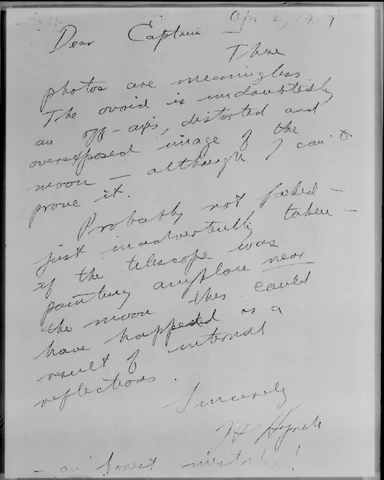 Apr 2, 19
Dear Captain —
These
photos are meaningless.
The ovoid is undoubtedly
an off-axis, distorted and
overexposed image of the
moon — although I can't
prove it.
Probably not faked —
just inadvertently taken —
if the telescope was
pointing anyplace near
the moon this could
have happened as a
result of internal
reflections.
Sincerely
Hynek
— an honest mistake!